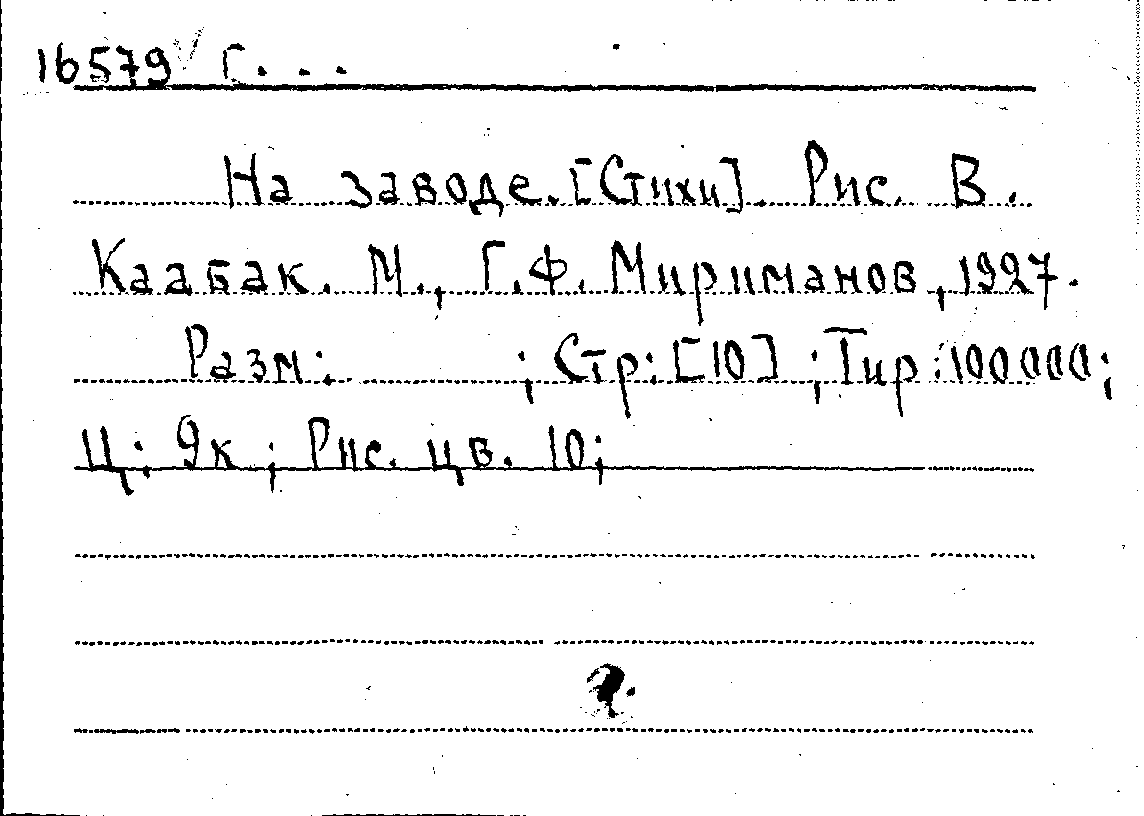 16579 Г. . .
На заводе. [Стихи]. Рис. В.
Каабак. М., Г.Ф. Мириманов, 1927.
Разм: ; Стр: [10] ; Тир: 100000;
Ц: 9к ; Рис. цв. 10;